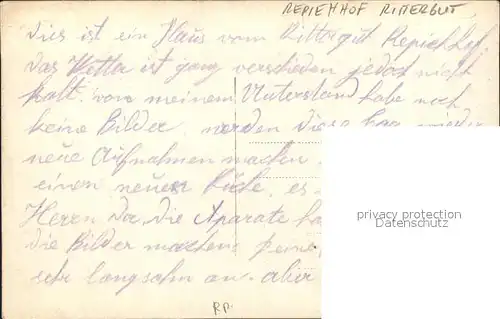 REPIEHHOF RITTERGUT
Dies ist ein Haus vom Rittergut Repiehhof,
das Wetter ist ganz verschieden jedoch nicht
kalt. von meinem Unterstand habe noch
keine Bilder, werden diese wieder
neue Aufnahmen machen
einen neuen es
Herren da, die Aparate ha
die Bilder machen, keine
sehr langsahm an. aber
privacy protection
Datenschutz
R.P.